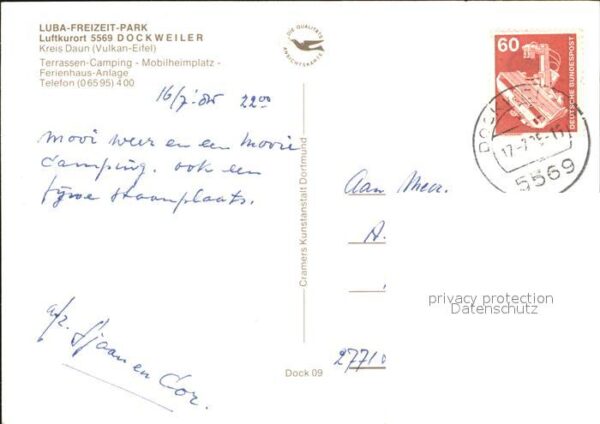 LUBA-FREIZEIT-PARK
Luftkurort 5569 DOCKWEILER
Kreis Daun (Vulkan-Eifel)
Terrassen-Camping - Mobilheimplatz -
Ferienhaus-Anlage
Telefon (06595) 400
DIE QUALITÄTS
ANSICHTSKARTE
60
DEUTSCHE BUNDESPOST
5569
16/7-'85 22⁰⁰
mooi weer en een mooie
camping. ook een
fijne staanplaats.
afz. Sjaan en Cor.
Cramers Kunstanstalt Dortmund
Dock 09
Aan Meer.
A.
2771
privacy protection
Datenschutz